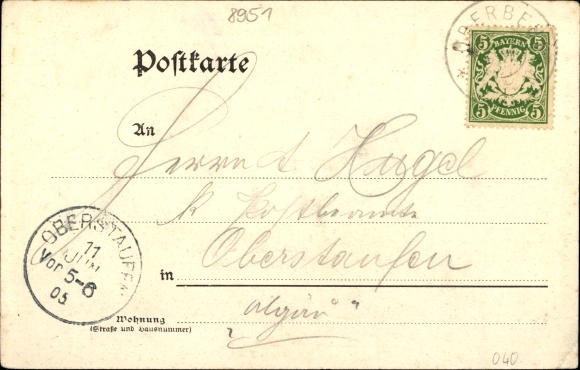 8951
OBERBE
5 BAYERN 5
5 PFENNIG 5
Postkarte
An
Herrn A. Hagel
k. Postbeamte
OBERSTAUFEN
11
JUN
Vor 5-6
05
in Oberstaufen
Algäu
Wohnung
(Straße und Hausnummer)
040